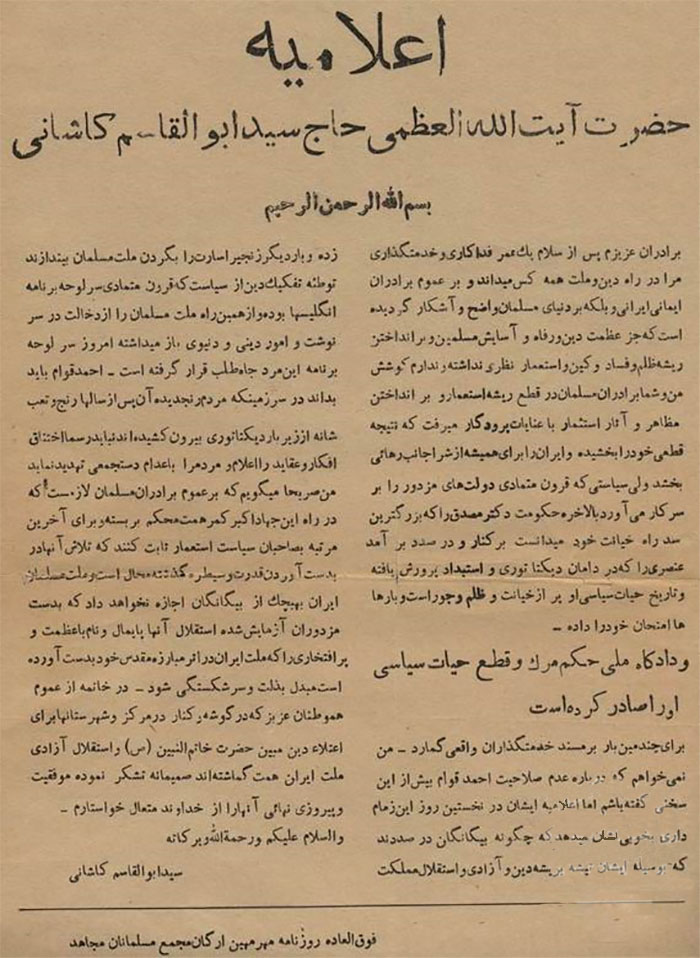 اعلامیه
حضرت آیت الله العظمی حاج سید ابوالقاسم کاشانی
بسم الله الرحمن الرحیم
برادران عزیزم پس از سلام یك عمر فداکاری و خدمتگذاری
مرا در راه دین و ملت همه کس میداند و بر عموم برادران
ایمانی ایرانی و بلکه بر دنیای مسلمان واضح و آشکار گردیده
است که جز عظمت دین و رفاه و آسایش مسلمین و بر انداختن
ریشه ظلم و فساد و کین و استعمار نظری نداشته و ندارم کوشش
من و شما برادران مسلمان در قطع ریشه استعمار و بر انداختن
مظاهر و آثار استثمار با عنایات پرودگار میرفت که نتیجه
قطعی خود را بخشیده و ایران را برای همیشه از شر اجانب رهائی
بخشد ولی سیاستی که قرون متمادی دولت های مزدور را بر
سر کار می آورد بالاخره حکومت دکتر مصدق را که بزرگترین
سد راه خیانت خود میدانست بر کنار و در صدد بر آمد
عنصری را که در دامان دیکتا توری و استبداد پرورش یافته
و تاریخ حیات سیاسی او پر از خیانت و ظلم و جور است و بارها
ها امتحان خود را داده -
و دادگاه ملی حکم مرك و قطع حیات سیاسی
او را صادر کرده است
برای چندمین بار بر مسند خدمتگذاران واقعی گمارد - من
نمی خواهم که در باره عدم صلاحیت احمد قوام بیش از این
سخنی گفته باشم اما اعلامیه ایشان در نخستین روز این زمام
داری بخوبی نشان میدهد که چگونه بیگانگان در صددند
که بوسیله ایشان تیشه بریشه دین و آزادی و استقلال مملکت
زده و بار دیگر زنجیر اسارت را بگردن ملت مسلمان بیندازند
توطئه تفکیك دین از سیاست که قرون متمادی سر لوحه برنامه
انگلیسها بوده و از همین راه ملت مسلمان را از دخالت در سر
نوشت و امور دینی و دنیوی باز میداشته امروز سر لوحه
برنامه این مرد جاه طلب قرار گرفته است - احمد قوام باید
بداند در سرزمینکه مردم رنجدیده آن پس از سالها رنج و تعب
شانه از زیر بار دیکتاتوری بیرون کشیده اند نباید رسما اختناق
افکار و عقاید را اعلام و مردم را باعدام دستجمعی تهدید نماید
من صریحا میگویم که بر عموم برادران مسلمان لازمست که
در راه این جهاد اکبر کمر همت محکم بر بسته و برای آخرین
مرتبه بصاحبان سیاست استعمار ثابت کنند که تلاش آنها در
بدست آوردن قدرت و سیطره گذشته محال است و ملت مسلمان
ایران بهیچك از بیگانگان اجازه نخواهد داد که بدست
مزدوران آزمایش شده استقلال آنها پایمال و نام با عظمت و
پر افتخاری را که ملت ایران در اثر مبارزه مقدس خود بدست آورده
است مبدل بذلت و سر شکستگی شود - در خاتمه از عموم
هموطنان عزیز که در گوشه و کنار در مرکز و شهرستانها برای
اعتلاء دین مبین حضرت خاتم النبین (ص) و استقلال آزادی
ملت ایران همت گماشته اند صمیمانه تشکر نموده موفقیت
و پیروزی نهائی آنها را از خداوند متعال خواستارم -
والسلام علیکم و رحمة الله و برکاته
سید ابوالقاسم کاشانی
فوق العاده روزنامه مهر میهن ارگان مجمع مسلمانان مجاهد